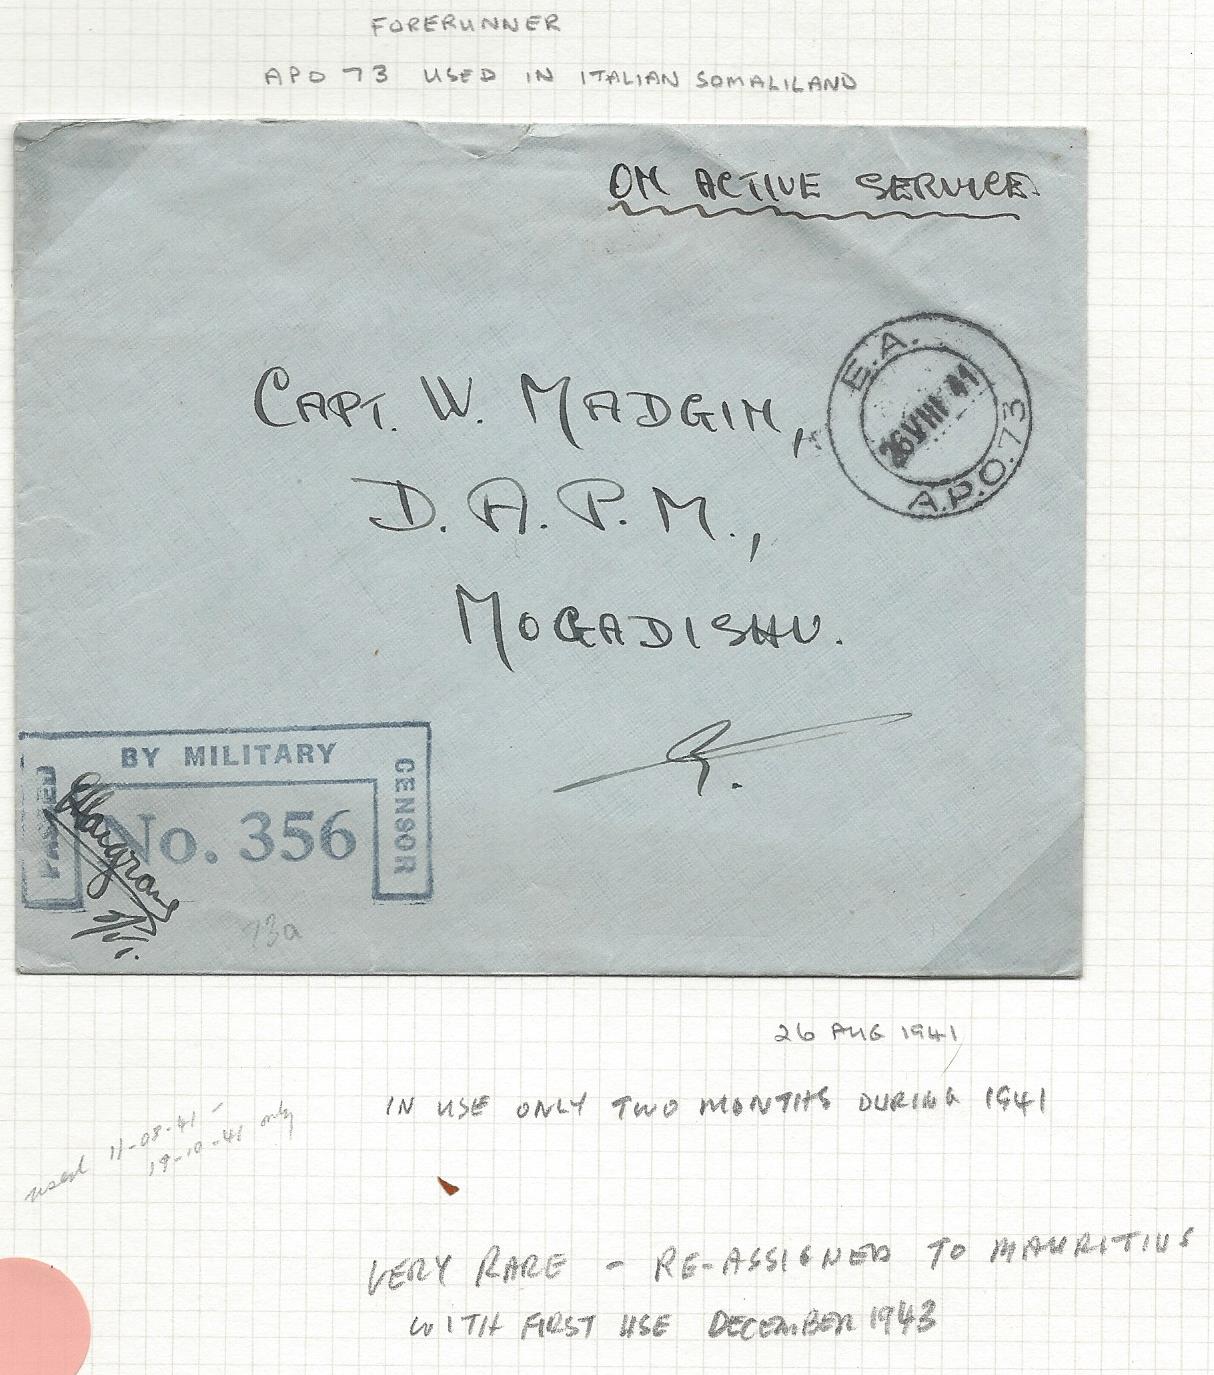 FORERUNNER
APO 73 USED IN ITALIAN SOMALILAND
ON ACTIVE SERVICE.
E.A.
26 VIII 41
A.P.O. 73
CAPT. W. MADGIN,
D.A.P.M.,
MOGADISHU.
PASSED
BY MILITARY
CENSOR
No. 356
73a
26 AUG 1941
IN USE ONLY TWO MONTHS DURING 1941
used 11-08-41 -
19-10-41 only
VERY RARE - RE-ASSIGNED TO MAURITIUS
WITH FIRST USE DECEMBER 1943